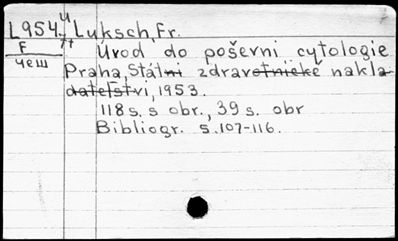 L954.4 Luksch, Fr.
F
чеш
Úvod do poševni cytologie
Praha, Státni zdravotnické nakla-
datelstvi, 1953.
118 s. s obr., 39 s. obr
Bibliogr. s. 107-116.